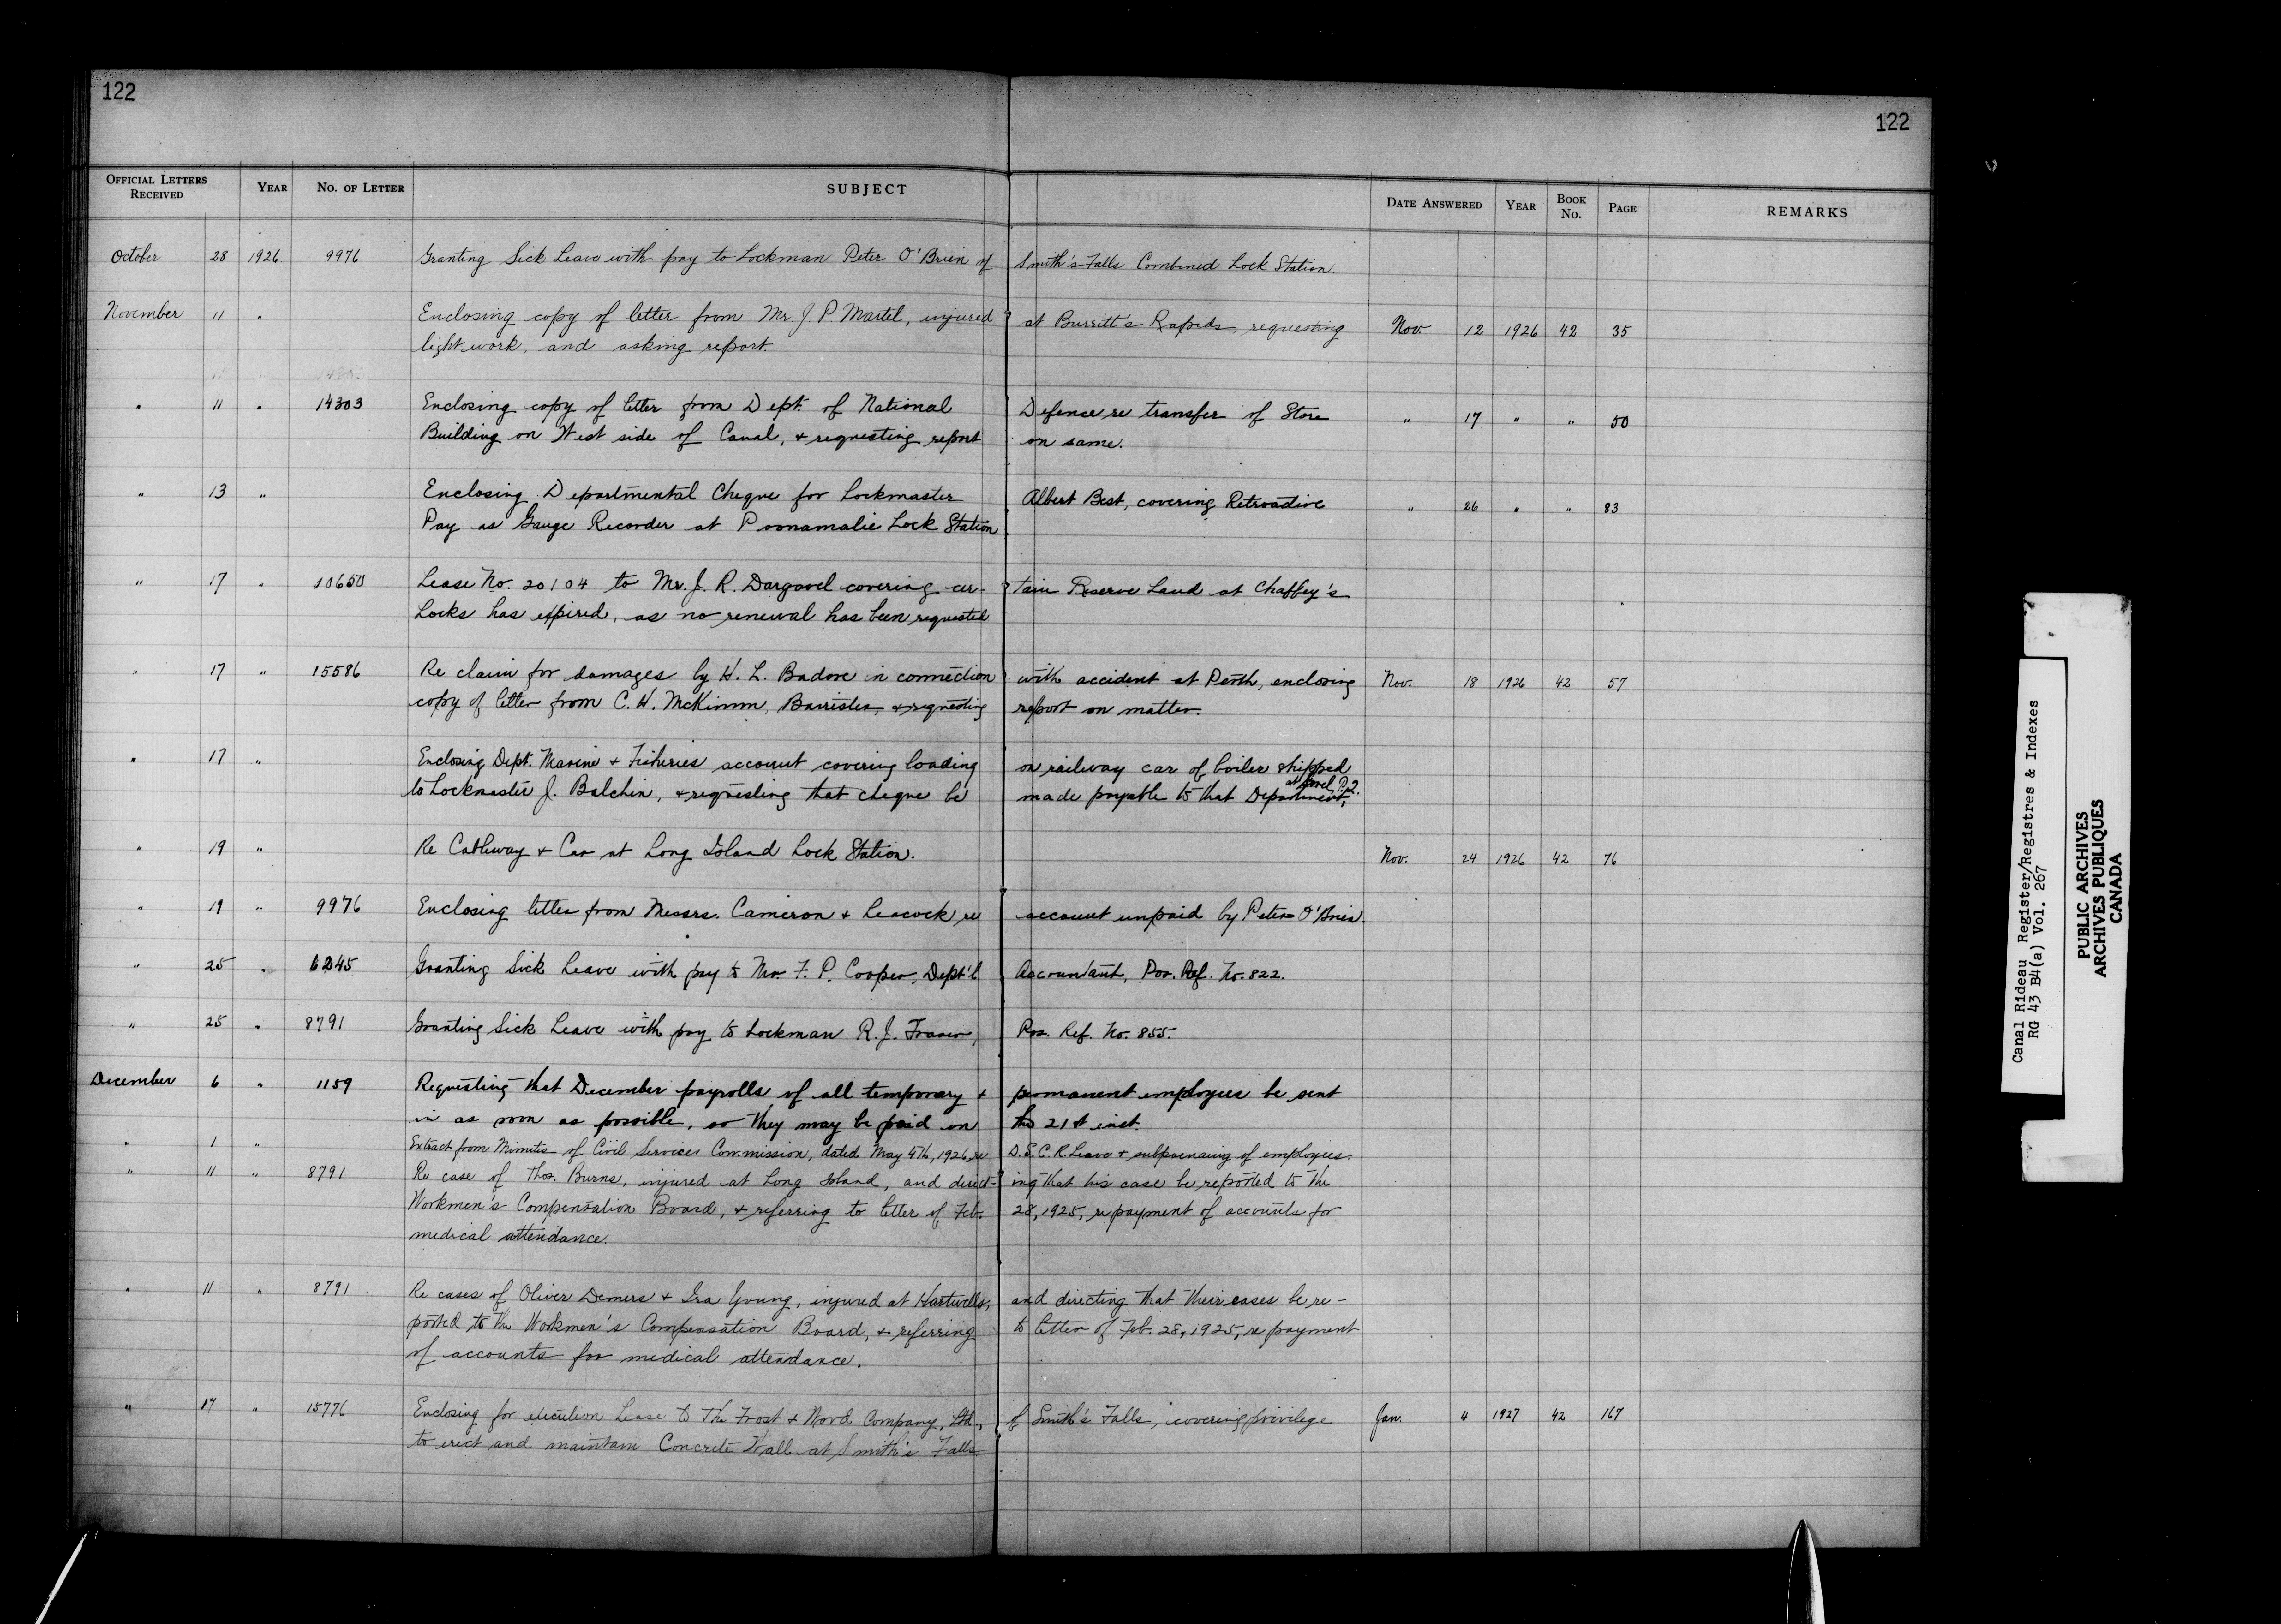 122
122
OFFICIAL LETTERS RECEIVED YEAR NO. OF LETTER SUBJECT DATE ANSWERED YEAR BOOK NO. PAGE REMARKS
October 28 1926 9976 Granting Sick Leave with pay to Lockman Peter O'Brien of Smith's Falls Combined Lock Station.
November 11 " Enclosing copy of letter from Mr. J. P. Martel, injured at Burritt's Rapids, requesting Nov. 12 1926 42 35
light work, and asking report.
" 11 " 14303 Enclosing copy of letter from Dept. of National Defence re transfer of Store " 17 " " 50
Building on West side of Canal, & requesting report on same.
" 13 " Enclosing Departmental Cheque for Lockmaster Albert Best, covering Retroactive " 26 " " 83
Pay as Gauge Recorder at Poonamalie Lock Station
" 17 " 10650 Lease No. 20104 to Mr. J. R. Dargavel covering cer- tain Reserve Land at Chaffey's
Locks has expired, as no renewal has been requested
" 17 " 15586 Re claim for damages by H. L. Badore in connection with accident at Perth, enclosing Nov. 18 1926 42 57
copy of letter from C. H. McKimm, Barrister, & requesting report on matter.
" 17 " Enclosing Dept. Marine & Fisheries account covering loading on railway car of boiler shipped
to Lockmaster J. Balchin, & requesting that cheque be made payable to that Department, at Sorel, P.Q.
" 19 " Re Cableway & Car at Long Island Lock Station. Nov. 24 1926 42 76
" 19 " 9976 Enclosing letter from Messrs. Cameron & Leacock re account unpaid by Peter O'Brien.
" 25 " 6245 Granting Sick Leave with pay to Mr. F. P. Cooper, Dept'l Accountant, Pos. Ref. No. 822.
" 25 " 8791 Granting Sick Leave with pay to Lockman R. J. Fraser, Pos. Ref. No. 855.
December 6 " 1159 Requesting that December payrolls of all temporary & permanent employees be sent
in as soon as possible, so they may be paid on the 21st inst.
" 1 " Extract from Minutes of Civil Service Commission, dated May 5th, 1926, re D.S.C.R. Leave & of employees.
" 11 " 8791 Re case of Thos. Burns, injured at Long Island, and direct- ing that his case be reported to the
Workmen's Compensation Board, & referring to letter of Feb. 28, 1925, re payment of accounts for
medical attendance.
" 11 " 8791 Re cases of Oliver Demers & Ira Young, injured at Hartwells, and directing that their cases be re-
ported to the Workmen's Compensation Board, & referring to letter of Feb. 28, 1925, re payment
of accounts for medical attendance.
" 17 " 15776 Enclosing for execution Lease to The Frost & Wood Company, Ltd., of Smith's Falls, covering privilege Jan. 4 1927 42 167
to erect and maintain Concrete Wall at Smith's Falls.
Canal Rideau Register/Registres & Indexes
RG 43 B4(a) Vol. 267
PUBLIC ARCHIVES
ARCHIVES PUBLIQUES
CANADA